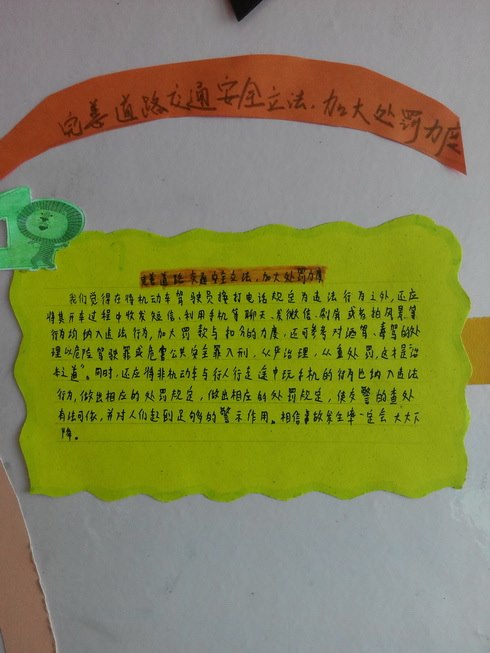 完善道路交通安全立法、加大处罚力度
完善道路交通安全立法、加大处罚力度
我们觉得在将机动车驾驶员接打电话规定为违法行为之外,还应
将其开车过程中收发短信、利用手机等聊天、发微信、刷屏或者拍风景等
行为均纳入违法行为,加大罚款与扣分的力度,还可参考对酒驾、毒驾的处
理以危险驾驶罪或危害公共安全罪入刑,从严治理,从重处罚,这才是“治
本之道”。同时,还应将非机动车与行人行走途中玩手机的行为也纳入违法
行为,做出相应的处罚规定,做出相应的处罚规定,使交警的查处
有法可依,并对人们起到足够的警示作用。相信事故发生率一定会大大下
降。